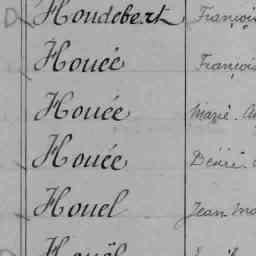 D Houdebert François
Houée François
Houée Marie.
Houée Désiré.
Houel Jean
Houël